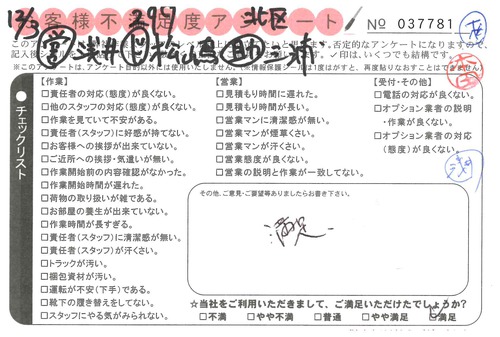 12/3 297 北区
お客様不満足度アンケート No 037781
記入後
※このアンケートは、アンケート目的以外には使用いたしません。
チェックリスト
【作業】
□責任者の対応(態度)が良くない。
□他のスタッフの対応(態度)が良くない。
□作業を見ていて不安がある。
□責任者(スタッフ)に好感が持てない。
□お客様への挨拶が出来ていない。
□ご近所への挨拶・気遣いが無い。
□作業開始前の内容確認がなかった。
□作業開始時間が遅れた。
□荷物の取り扱いが雑である。
□お部屋の養生が出来ていない。
□作業時間が長すぎる。
□責任者(スタッフ)に清潔感が無い。
□責任者(スタッフ)が汗くさい。
□トラックが汚い。
□梱包資材が汚い。
□運転が不安(下手)である。
□靴下の履き替えをしてない。
□スタッフにやる気がみられない。
【営業】
□見積もり時間に遅れた。
□見積もり時間が長い。
□営業マンに清潔感が無い。
□営業マンが煙草くさい。
□営業マンが汗くさい。
□営業態度が良くない。
□営業の説明と作業が一致してない。
【受付・その他】
□電話の対応が良くない。
□オプション業者の説明
・作業が良くない。
□オプション業者の対応
(態度)が良くない。
その他、ご意見・ご要望等ありましたらお書き下さい。
満足
☆当社をご利用いただきまして、ご満足いただけたでしょうか?
□不満 □やや不満 □普通 □やや満足 □満足